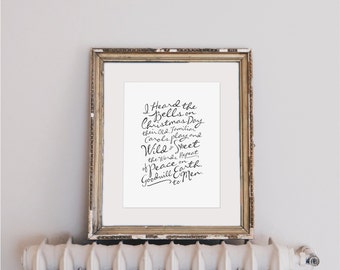 I Heard the
Bells on
Christmas Day
their Old, Familiar
Carols play and
Wild & Sweet
the Words Repeat
of Peace on
Goodwill Earth
to Men